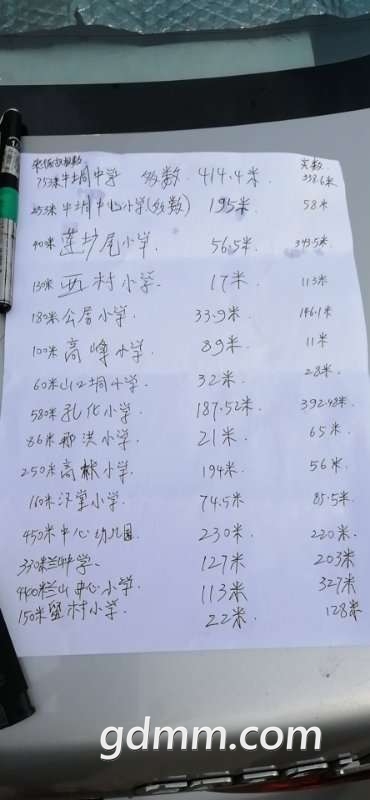 实数
753米牛坳中学 欠数 414.4米 338.6米
253米牛坳中心小学(欠数) 195米 58米
尾小学 56.5米 343.5米
130米西村小学 17米 113米
180米公居小学 33.9米 146.1米
100米高峰小学 89米 11米
60米山口坳小学 32米 28米
580米乳化小学 187.52米 392.48米
86米那洪小学 21米 65米
250米高林小学 194米 56米
160米汶堂小学 74.5米 85.5米
450米中心幼儿园 230米 220米
330米兰中学 127米 203米
440米兰山中心小学 113米 327米
150米留村小学 22米 128米
gdmm.com